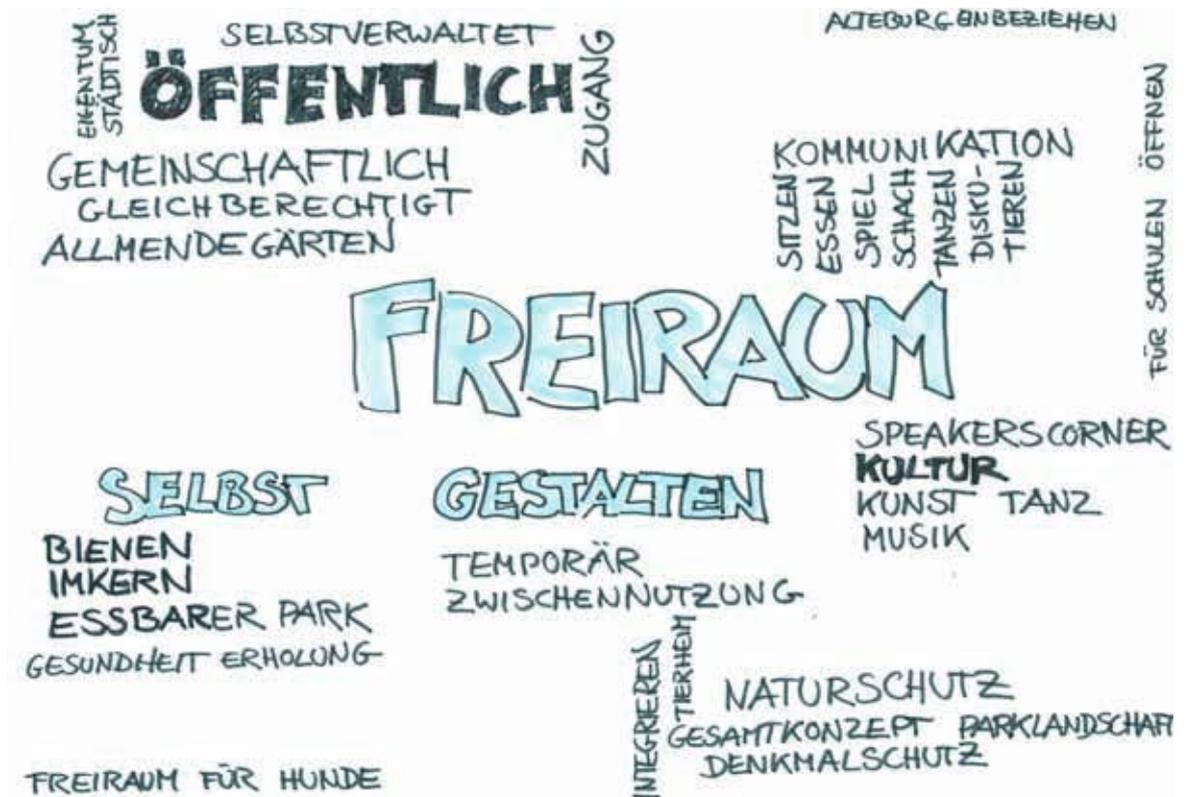 EIGENTUM
STÄDTISCH
SELBSTVERWALTET
ÖFFENTLICH
ZUGANG
GEMEINSCHAFTLICH
GLEICHBERECHTIGT
ALLMENDEGÄRTEN
ALTEBURG EINBEZIEHEN
KOMMUNIKATION
SITZEN
ESSEN
SPIEL
SCHACH
TANZEN
DISKU-
TIEREN
FÜR SCHULEN ÖFFNEN
FREIRAUM
SPEAKERSCORNER
KULTUR
KUNST TANZ
MUSIK
SELBST GESTALTEN
BIENEN
IMKERN
ESSBARER PARK
GESUNDHEIT ERHOLUNG
TEMPORÄR
ZWISCHENNUTZUNG
INTEGRIEREN
TIERHEIM
NATURSCHUTZ
GESAMTKONZEPT PARKLANDSCHAFT
DENKMALSCHUTZ
FREIRAUM FÜR HUNDE